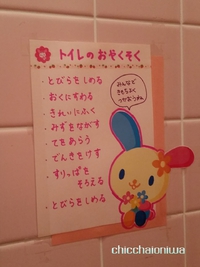 トイレの おやくそく
・とびらをしめる
・おくにすわる
・きれいにふく
・みずをながす
・てをあらう
・でんきをけす
・すりっぱを
そろえる
・とびらをしめる
みんなで
きもちよく
つかおうね
chicchaioniwa